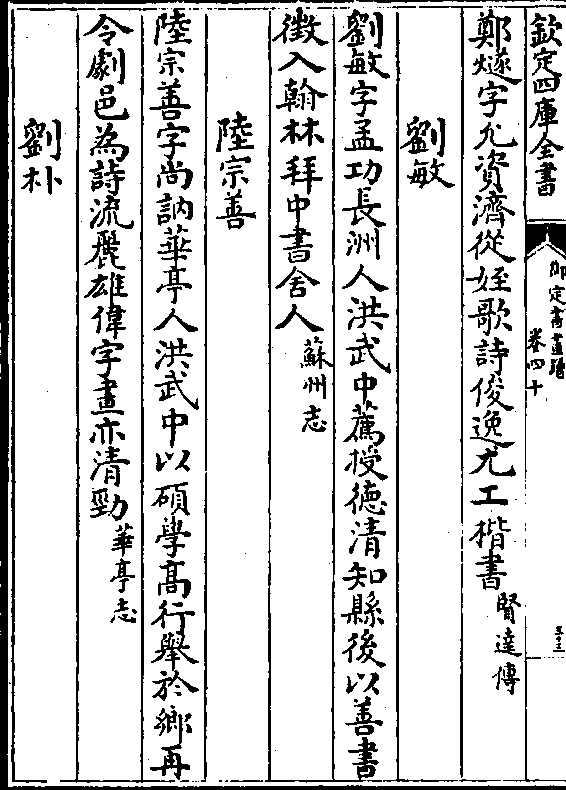 欽定四庫全書
御定書畫譜
卷四十
三十三
鄭燧字允資濟從姪歌詩俊逸尤工楷書賢達傳
劉敏
劉敏字孟功長洲人洪武中薦授德清知縣後以善書
徵入翰林拜中書舍人蘇州志
陸宗善
陸宗善字尚訥華亭人洪武中以碩學高行舉於鄉再
令劇邑為詩流麗雄偉字畫亦清勁華亭志
劉朴